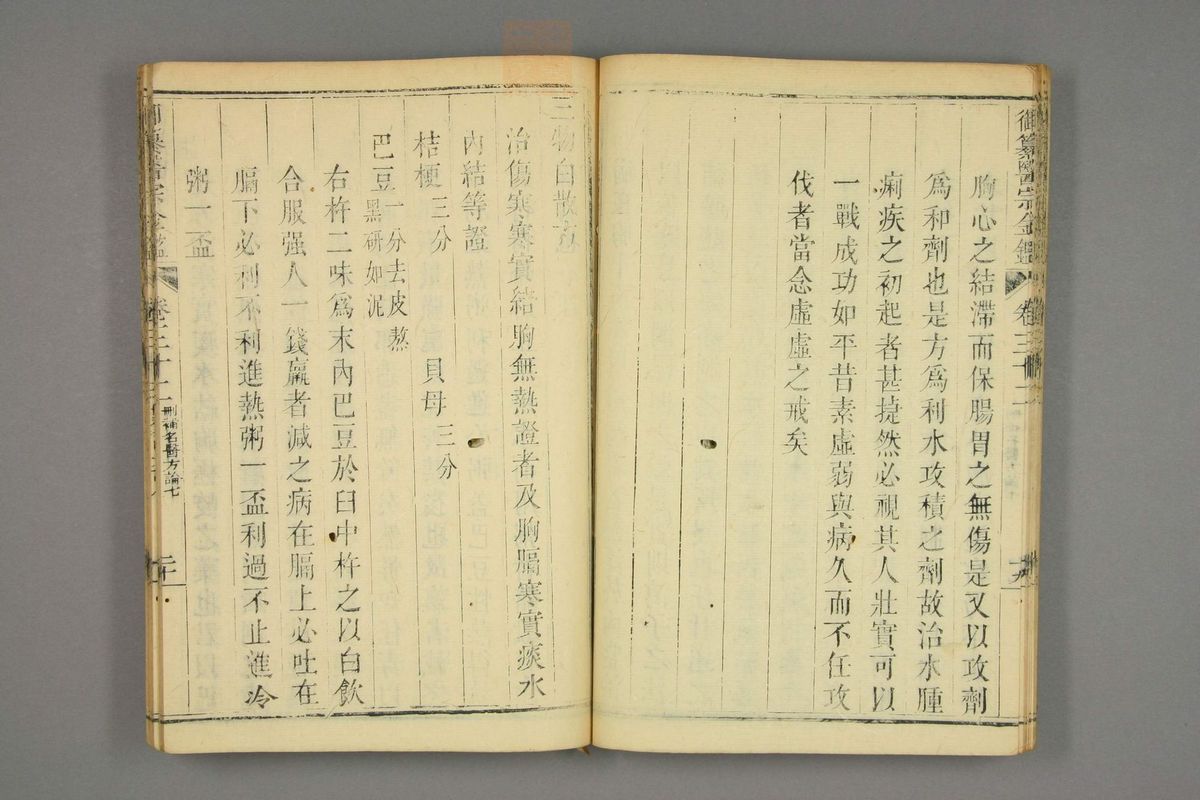 御纂醫宗金鑑
卷三十二
胸心之結滯而保腸胃之無傷是又以攻劑
爲和劑也是方爲利水攻積之劑故治水腫
痢疾之初起者甚捷然必視其人壯實可以
一戰成功如平昔素虛弱與病久而不任攻
伐者當念虛虛之戒矣
三物白散方
治傷寒寒實結胸無熱證者及胸膈寒實痰水
內結等證
桔梗三分 貝母三分
巴豆一分去皮熬
黑研如泥
右杵二味爲末內巴豆於臼中杵之以白飲
合服强人一錢羸者減之病在膈上必吐在
膈下必利不利進熱粥一盃利過不止進冷
粥一盃
刪補名醫方論七
二十